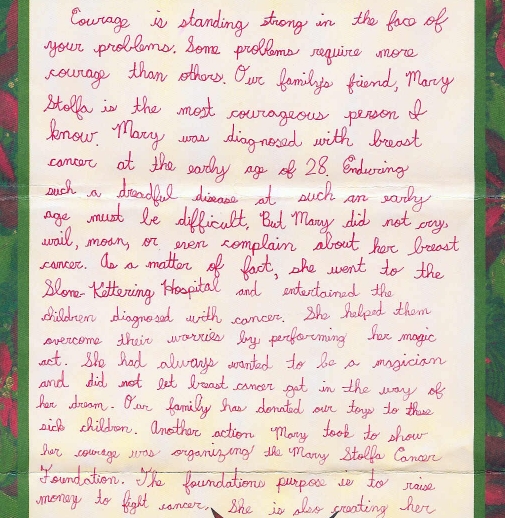 Courage is standing strong in the face of
your problems. Some problems require more
courage than others. Our family's friend, Mary
Stolfa is the most courageous person I
know. Mary was diagnosed with breast
cancer at the early age of 28. Enduring
such a dreadful disease at such an early
age must be difficult. But Mary did not cry,
wail, moan, or even complain about her breast
cancer. As a matter of fact, she went to the
Slone-Kettering Hospital and entertained the
children diagnosed with cancer. She helped them
overcome their worries by performing her magic
act. She had always wanted to be a magician
and did not let breast cancer get in the way of
her dream. Our family has donated our toys to these
sick children. Another action Mary took to show
her courage was organizing the Mary Stolfa Cancer
Foundation. The foundations purpose is to raise
money to fight cancer. She is also creating her